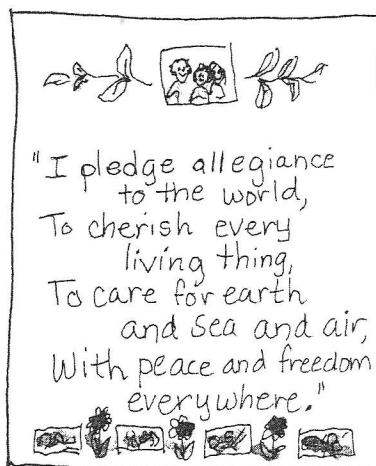 "I pledge allegiance
to the world,
To cherish every
living thing,
To care for earth
and sea and air,
With peace and freedom
everywhere."